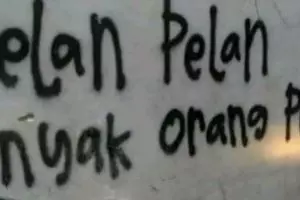 elan Pelan
nyak orang P